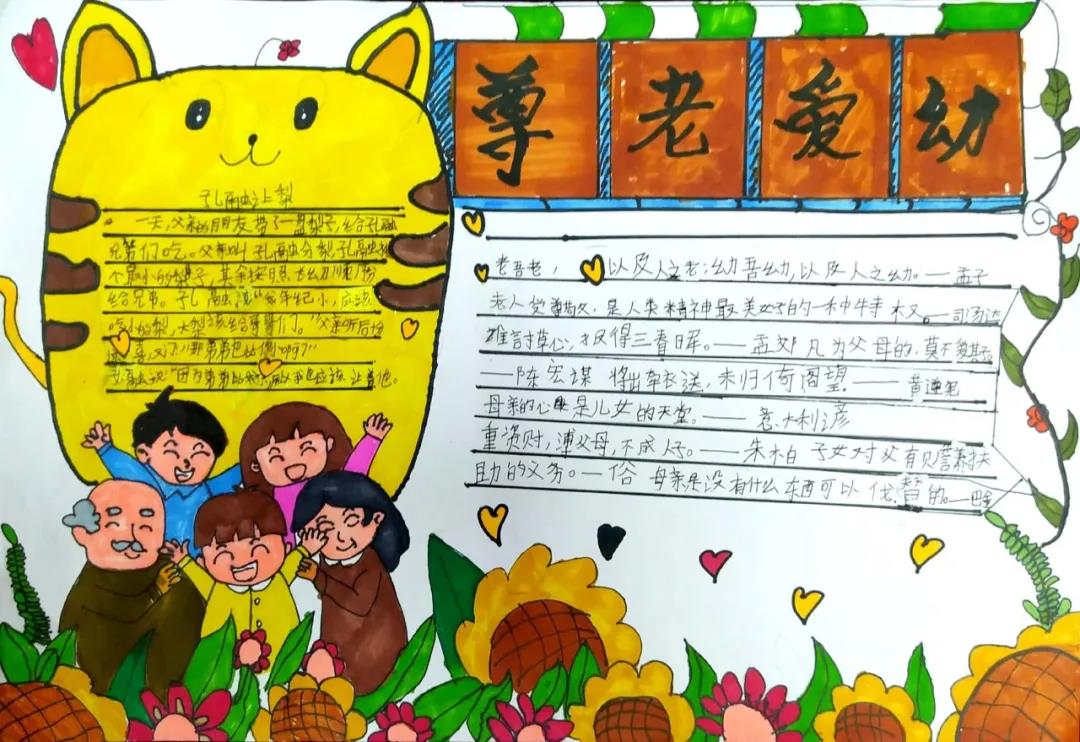 尊老爱幼
孔融让梨
一天,父亲的朋友带了一盘梨子,给孔融
兄弟们吃。父亲叫孔融分梨,孔融挑
个最小的梨子,其余按照长幼顺序分
给兄弟。孔融说"我年纪小,应该
吃小的梨,大梨该给哥哥们。"父亲听后
喜,又问"那弟弟也比你小啊?"
孔融说"因为弟弟比我小,所以我也应该让着他。
老吾老,以及人之老;幼吾幼,以及人之幼。—孟子
老人受尊敬,是人类精神最美好的一种特权。—司汤达
谁言寸草心,报得三春晖。——孟郊 凡为父母的,莫不爱其
——陈宏谋 将出牵衣送,未归倚阁望——黄遵宪
母亲的心是儿女的天堂。——意大利之彦
重资财,薄父母,不成人子。——朱柏 子女对父有赡养扶
助的义务。—俗 母亲是没有什么东西可以代替的。—巴金